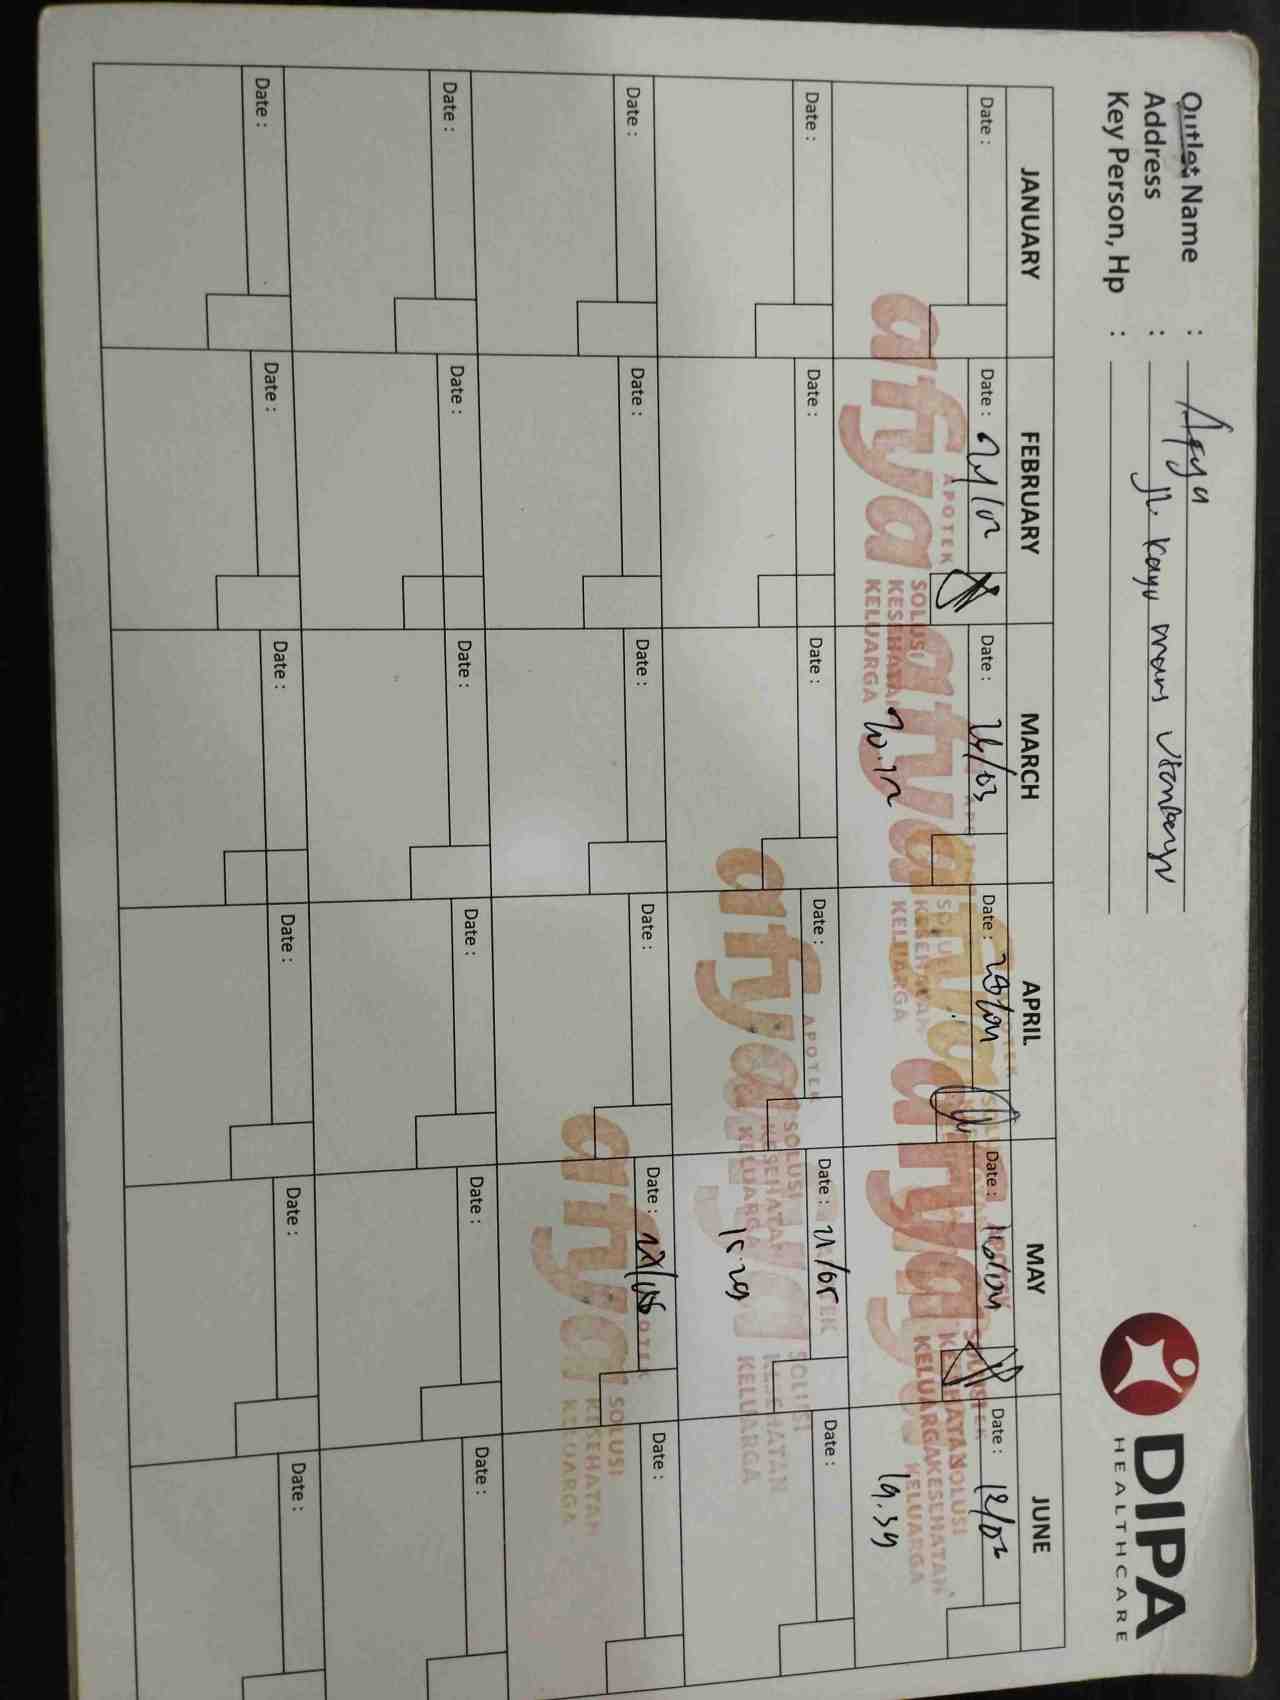 Outlet Name : Apya
Address : Jl. Kayu manis
Key Person, Hp :
DIPA
HEALTHCARE
JANUARY FEBRUARY MARCH APRIL MAY JUNE
Date : Date : Date : 24/03 Date : Date : Date :
20.
19.39
afya APOTEK
SOLUSI
KESEHATAN
KELUARGA
afya
SOLUSI
KESEHATAN
KELUARGA
afya
SOLUSI
KESEHATAN
KELUARGA
Date : Date : Date : Date : Date : 21/05 Date :
15.29
afya APOTEK
SOLUSI
KESEHATAN
KELUARGA
SOLUSI
KESEHATAN
KELUARGA
Date : Date : Date : Date : Date : Date :
afya APOTEK
SOLUSI
KESEHATAN
KELUARGA
Date : Date : Date : Date : Date : Date :
Date : Date : Date : Date : Date : Date :